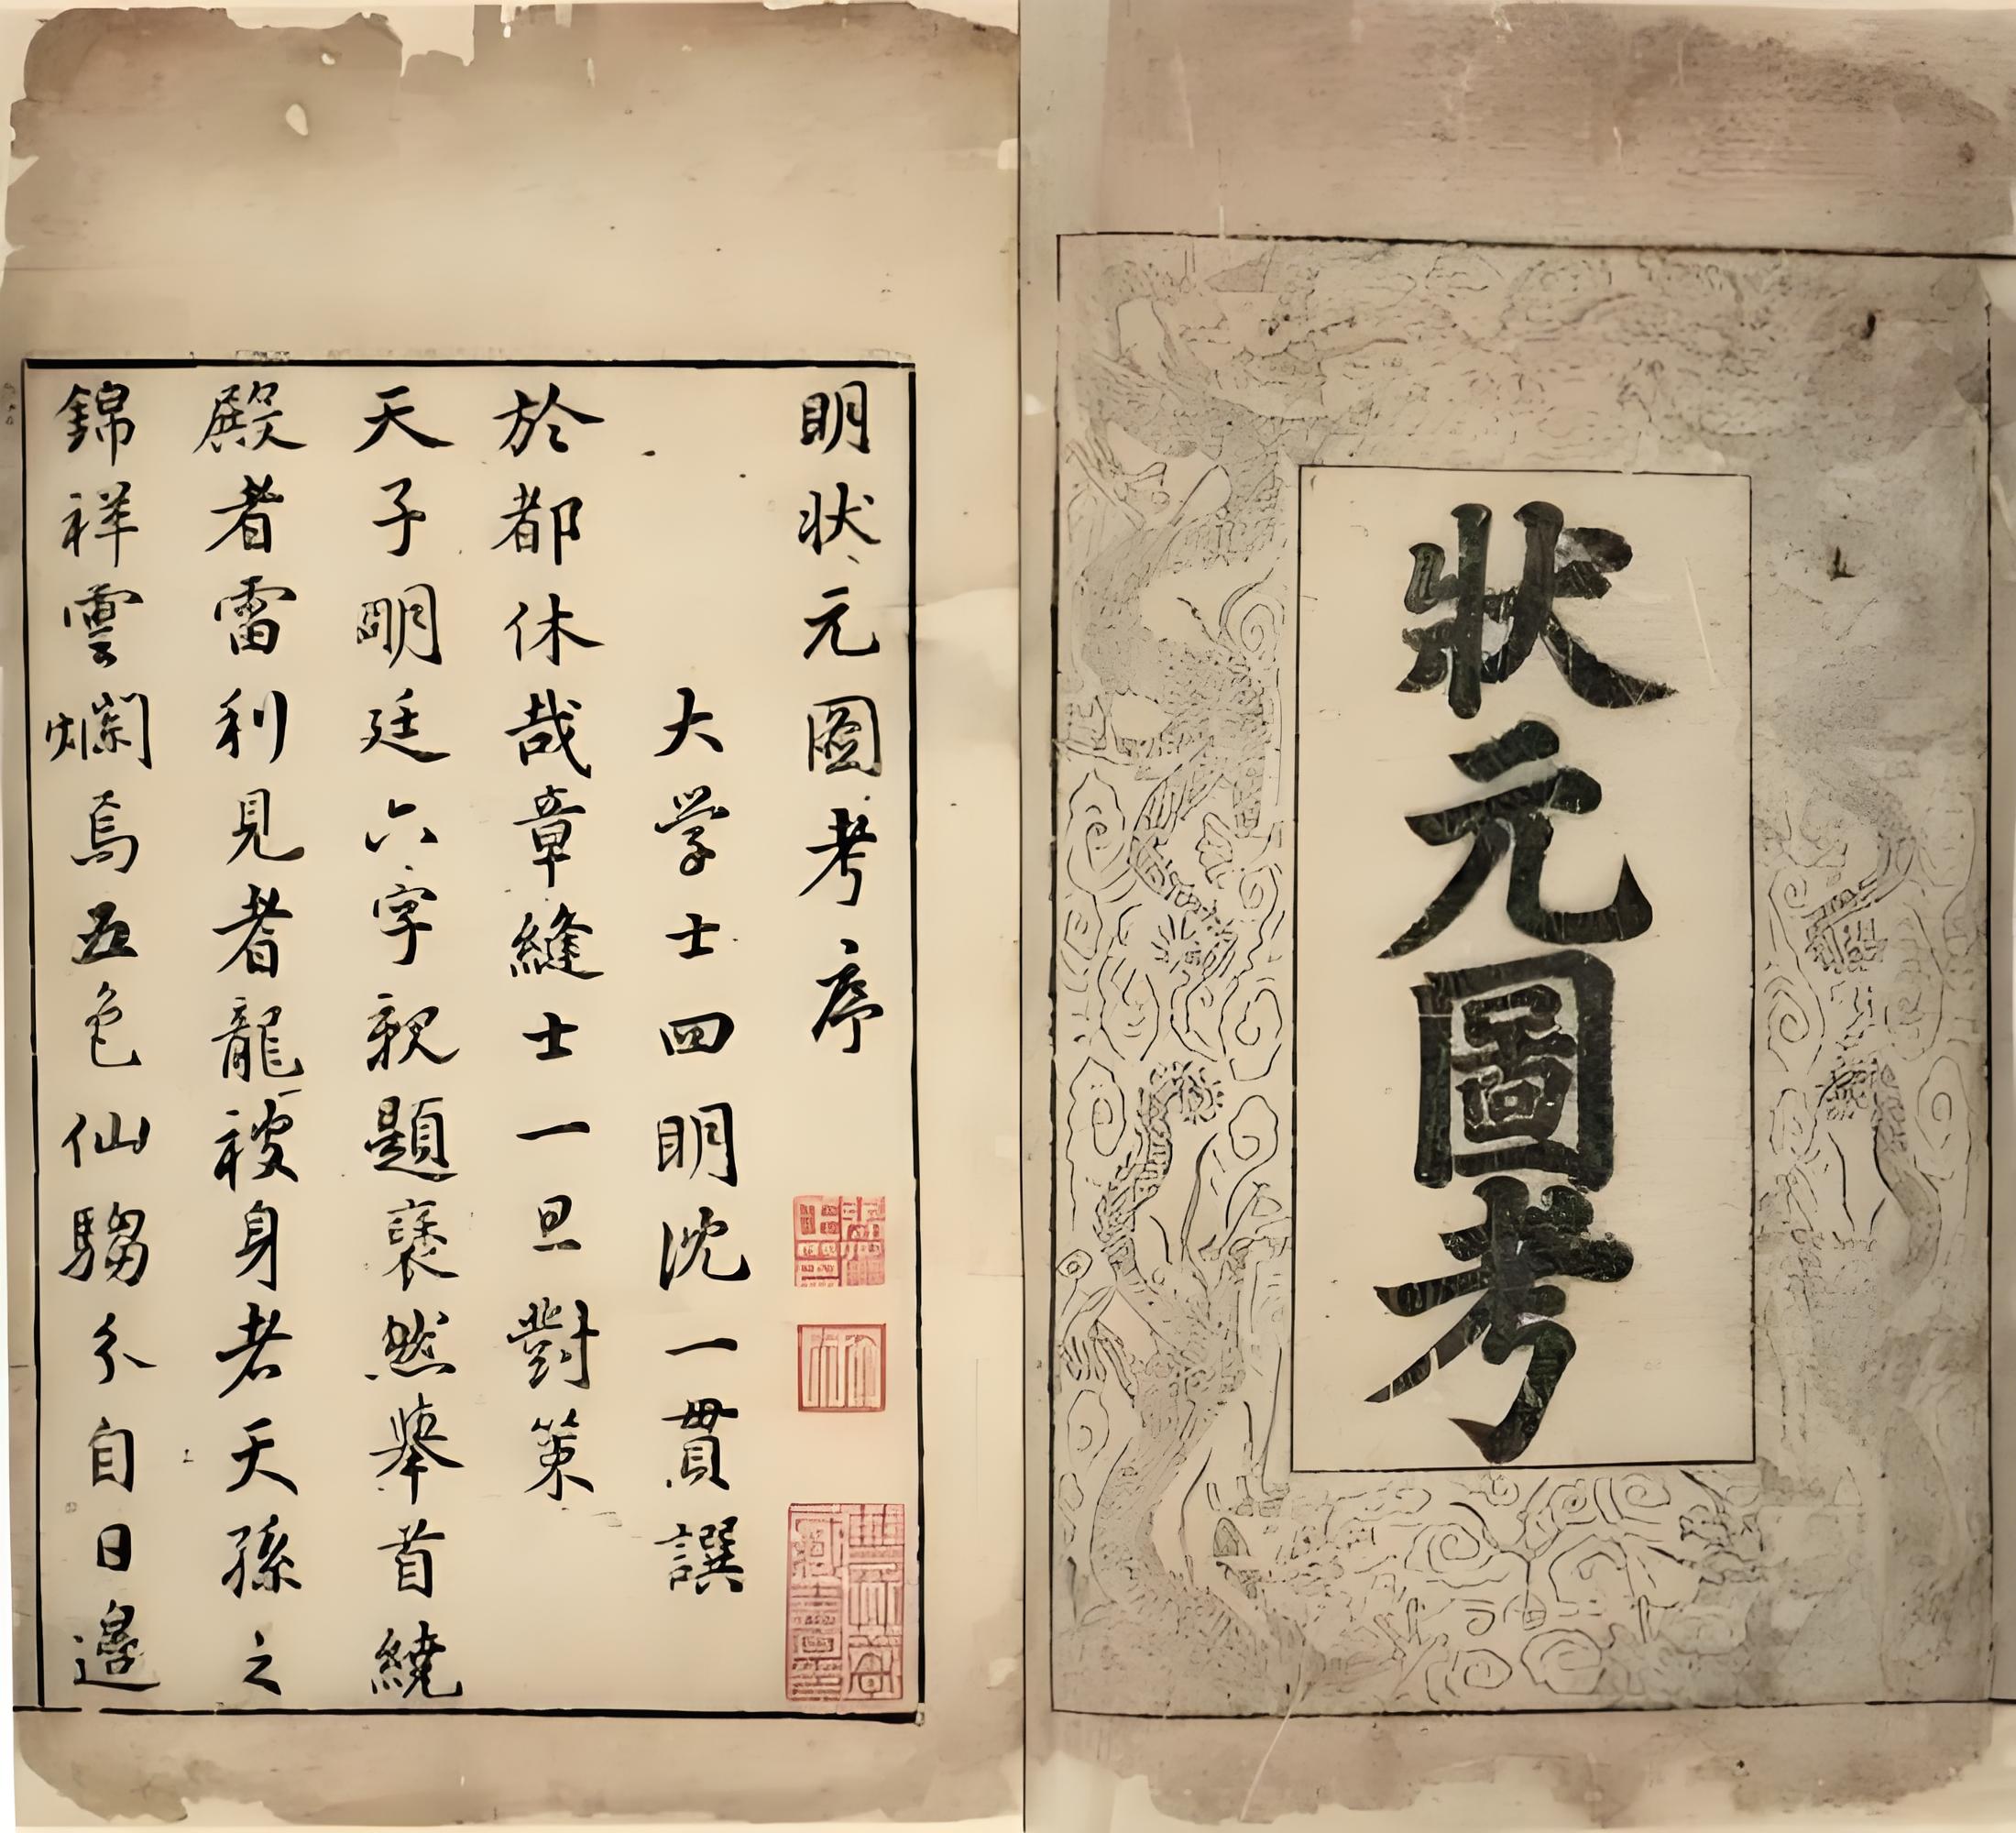 狀元圖考
明状元圖考序
大学士四明沈一貫譔
於都休哉章縫士一旦對策
天子明廷六字親題褎然舉首繞
殿者雷利見者龍被身者天孫之
錦祥雲爛焉五色仙騶分自日邊